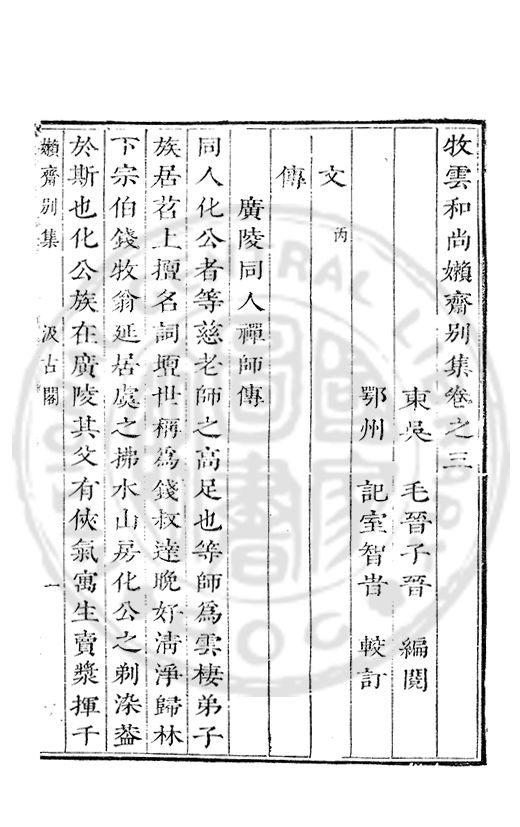 牧雲和尚嬾齋別集卷之三
東吳　毛晉子晉　編閱
鄂州　記室智旹　較訂
文　丙
傳
廣陵同人禪師傳
同人化公者等慈老師之高足也等師爲雲棲弟子
族居茗上擅名詞壇世稱爲錢叔達晚好清淨歸林
下宗伯錢牧翁延居虞之拂水山房化公之剃染葢
於斯也化公族在廣陵其父有俠氣寓生賣漿揮千
嬾齋別集　汲古閣　一